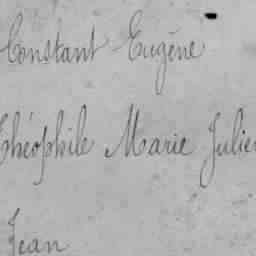 Constant Eugène
Théophile Marie Julie
Jean